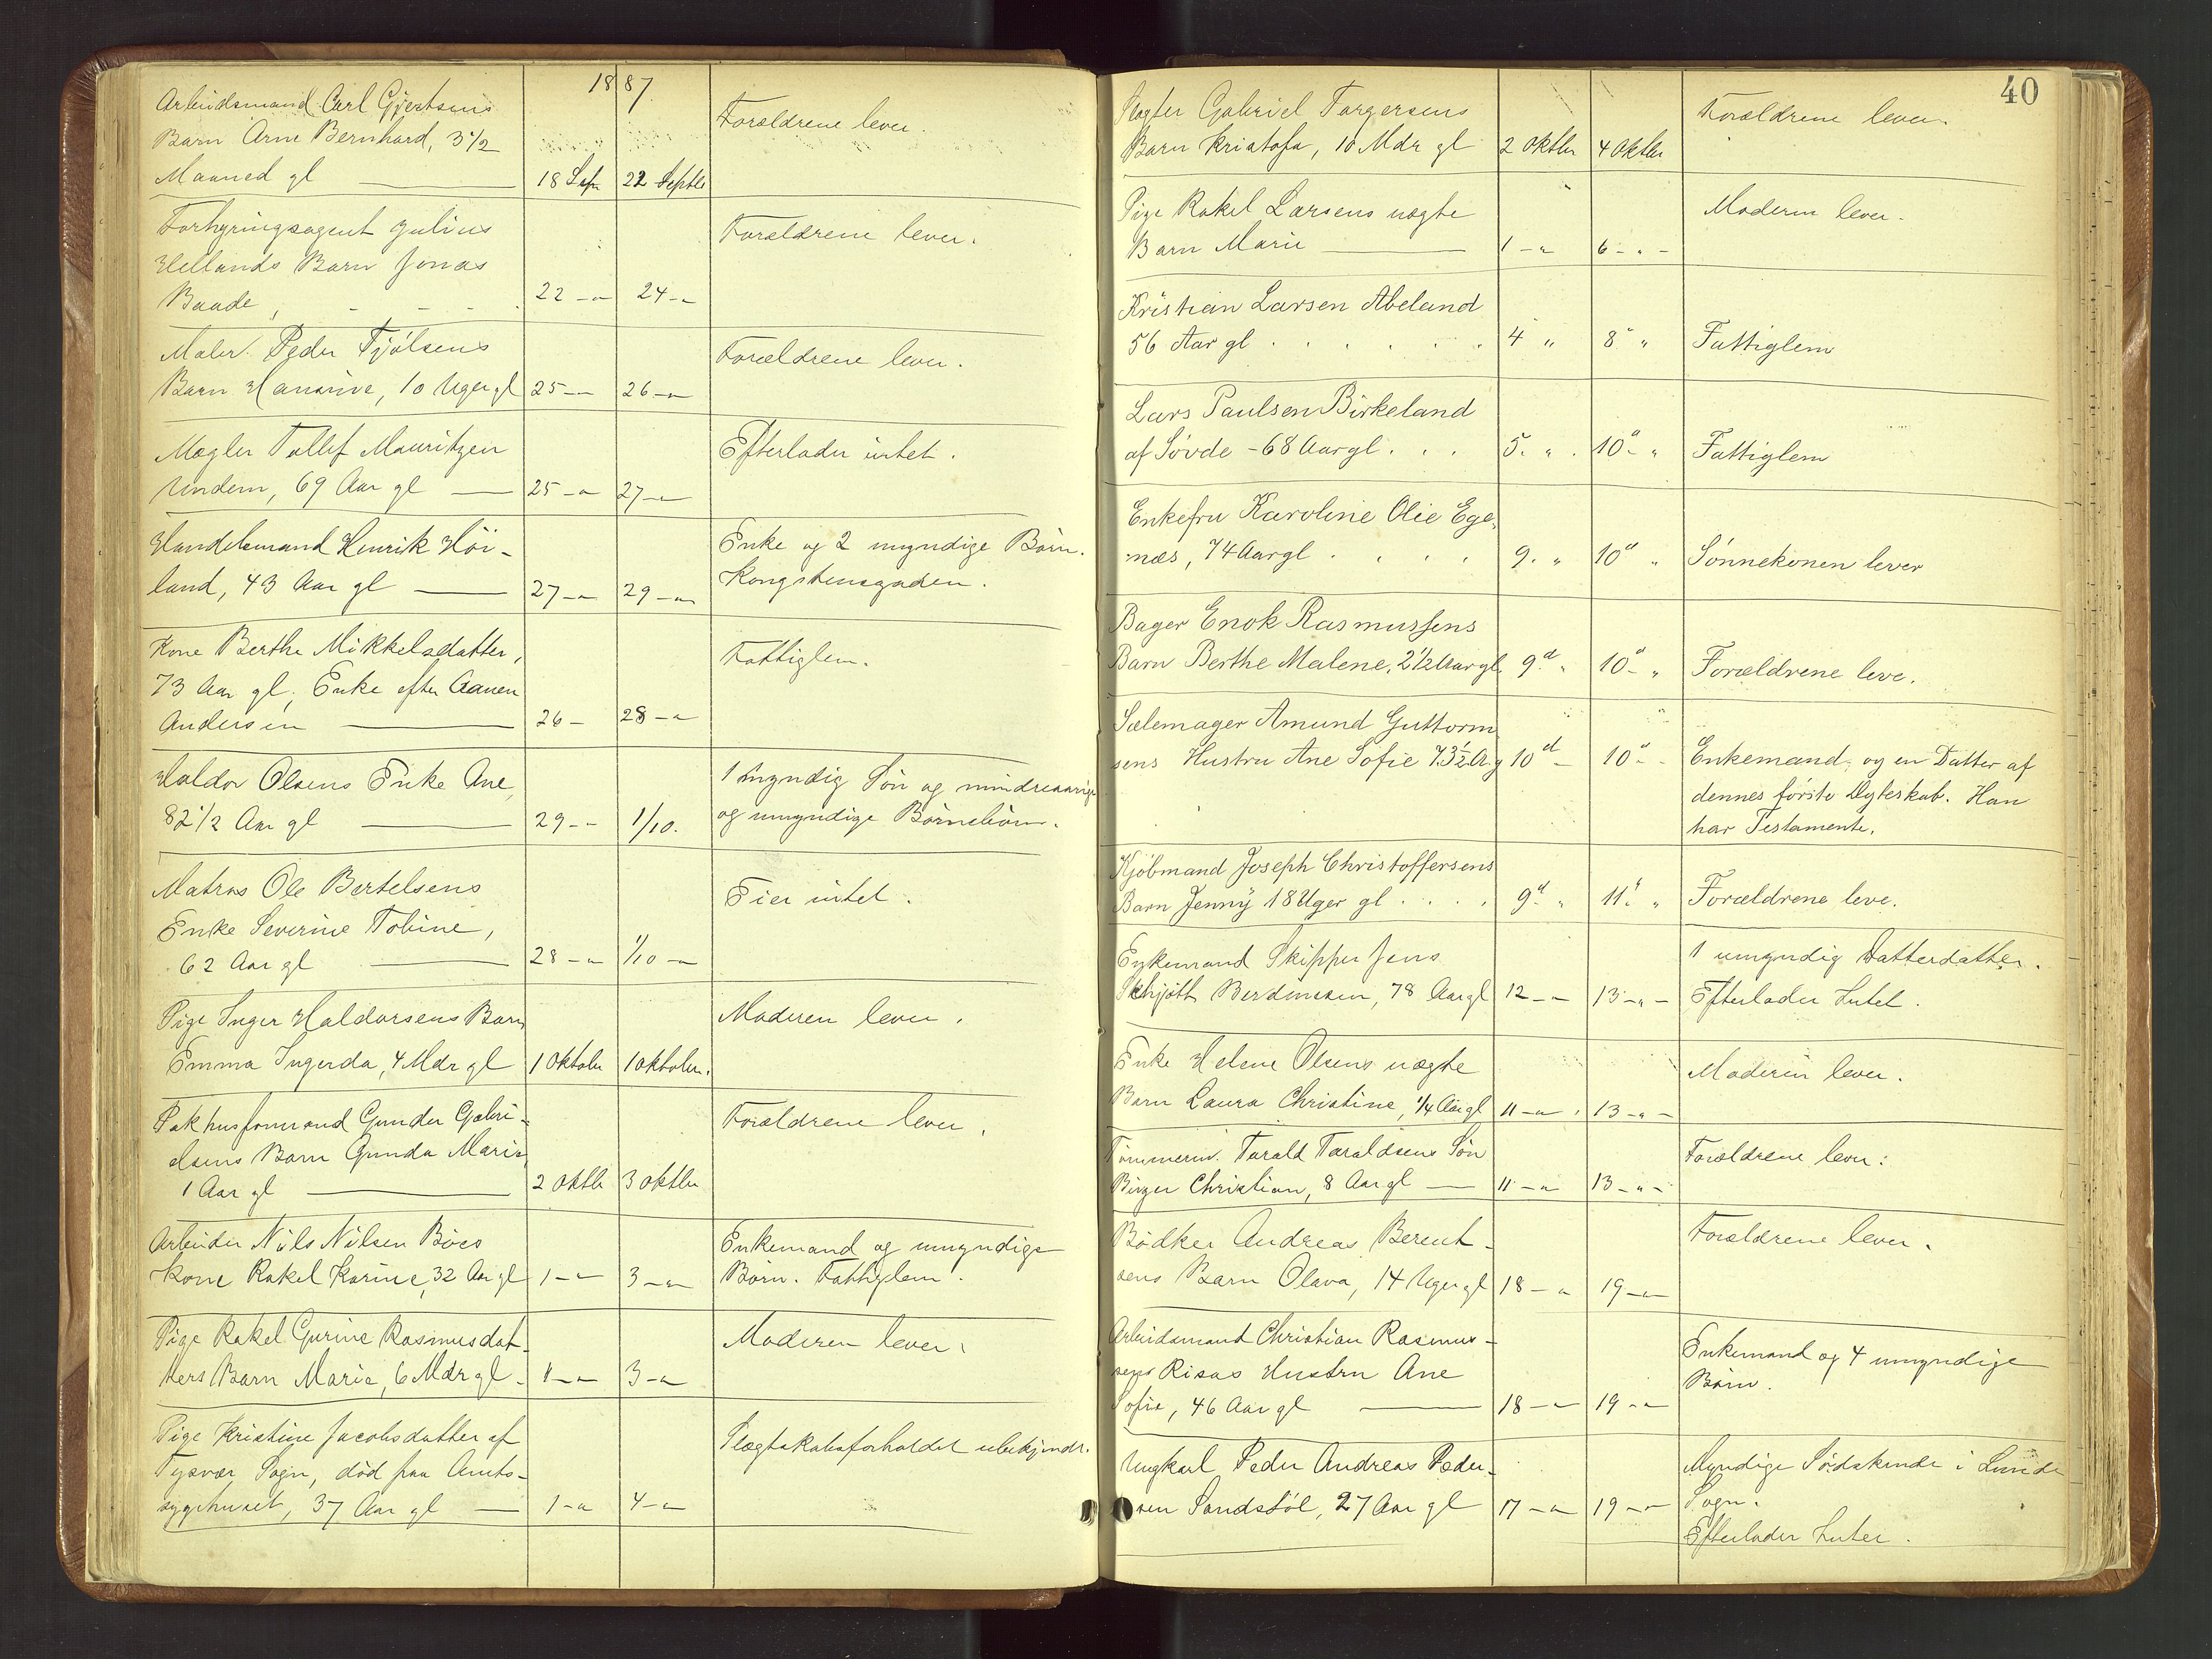 1887
Arbeidsmand Carl Gjertsens
Barn Arne Bernhard, 3 1/2
Maaned gl — 18 Sep 22 Septb
Forældrene lever.
Forhyringsagent Julius
Hellands Barn Jonas
Baade, 22 — " 24 — "
Forældrene lever.
Maler Peder Fjölsens
Barn Hansine, 10 Uger gl 25 — " 26 — "
Forældrene lever.
Mægler Tollef Mauritzen
Undem, 69 Aar gl — 25 — " 27 — "
Efterlader intet.
Handelsmand Henrik Höi-
land, 43 Aar gl — 27 — " 29 — "
Enke og 2 umyndige Börn.
Kongstensgaden.
Kone Berthe Mikkelsdatter,
73 Aar gl, Enke efter Aanen
Andersen — 26 — 28 — "
Fattiglem.
Haldor Olsens Enke Ane,
82 1/2 Aar gl — 29 — " 1/10.
1 myndig Sön og mindreaarige
og umyndige Börnebörn.
Matros Ole Bertelsens
Enke Severine Tobine,
62 Aar gl — 28 — " 1/10 — "
Eier intet.
Pige Inger Haldorsens Barn
Emma Ingerda, 4 Mdr gl 1 Oktober 1 Oktober.
Moderen lever.
Pakhusformand Gunder Gabri-
elsens Barn Gunda Marie,
1 Aar gl — 2 Oktb 3 Oktbr
Forældrene lever.
Arbeider Nils Nilsen Böes
Kone Rakel Karine, 32 Aar gl 1 — " 3 — "
Enkemand og umyndige
Börn. Fattiglem.
Pige Rakel Gurine Rasmusdat-
ters Barn Marie, 6 Mdr gl — 1 — " 3 — "
Moderen lever.
Pige Kristine Jacobsdatter af
Tysvær Sogn, död paa Amts-
sygehuset, 37 Aar gl — 1 — " 4 — "
Slægtskabsforholdet ubekjendt.
40
Slagter Gabriel Torgersens
Barn Kristofa, 10 Mdr gl 2 Oktbr 4 Oktbr
Forældrene lever.
Pige Rakel Larsens uægte
Barn Marie — 1 — " 6 — " —
Moderen lever.
Kristian Larsen Abeland
56 Aar gl . . . . . . 4 " 8 " "
Fattiglem
Lars Paulsen Birkeland
af Sövde - 68 Aar gl . . . 5. " . 10 " "
Fattiglem
Enkefru Karoline Olie Ege-
næs, 74 Aar gl . . . . 9. " 10 " "
Sönnekonen lever
Bager Enok Rasmussens
Barn Berthe Malene, 2 1/2 Aar gl 9 d " 10 " "
Forældrene leve.
Salemager Amund Guttorm
sens Hustru Ane Sofie 73 1/2 A. g 10 d — 10 " —
Enkemand og en Datter af
dennes förste Ægteskab. Han
har Testamente.
Kjöbmand Joseph Christoffersens
Barn Jenny 18 Uger gl . . . . 9 d " 11 " "
Forældrene leve.
Enkemand Skipper Jens
Schjött Berdinesen, 78 Aar gl 12 — " 13 — " —
1 umyndig Datterdatter.
Efterlader Intet.
Enke Helene Olsens uægte
Barn Laura Christine, 1/4 Aar gl 11 — " . 13 — " —
Moderen lever.
Tömmerm. Tarald Taraldsens Sön
Birger Christian, 8 Aar gl — 11 — " 13 — " —
Forældrene lever.
Bödker Andreas Berent-
sens Barn Olava, 14 Uger gl 18 — " 19 — "
Forældrene lever.
Arbeidsmand Christian Rasmus-
sens Risas Hustru Ane
Sofie, 46 Aar gl — 18 — " 19 — "
Enkemand og 4 umyndige
Börn.
Ungkarl Peder Andreas Peder-
sen Sandstöl, 27 Aar gl 17 — " 19 — "
Myndige Södskende i Lunde
Sogn.
Efterlader Intet.